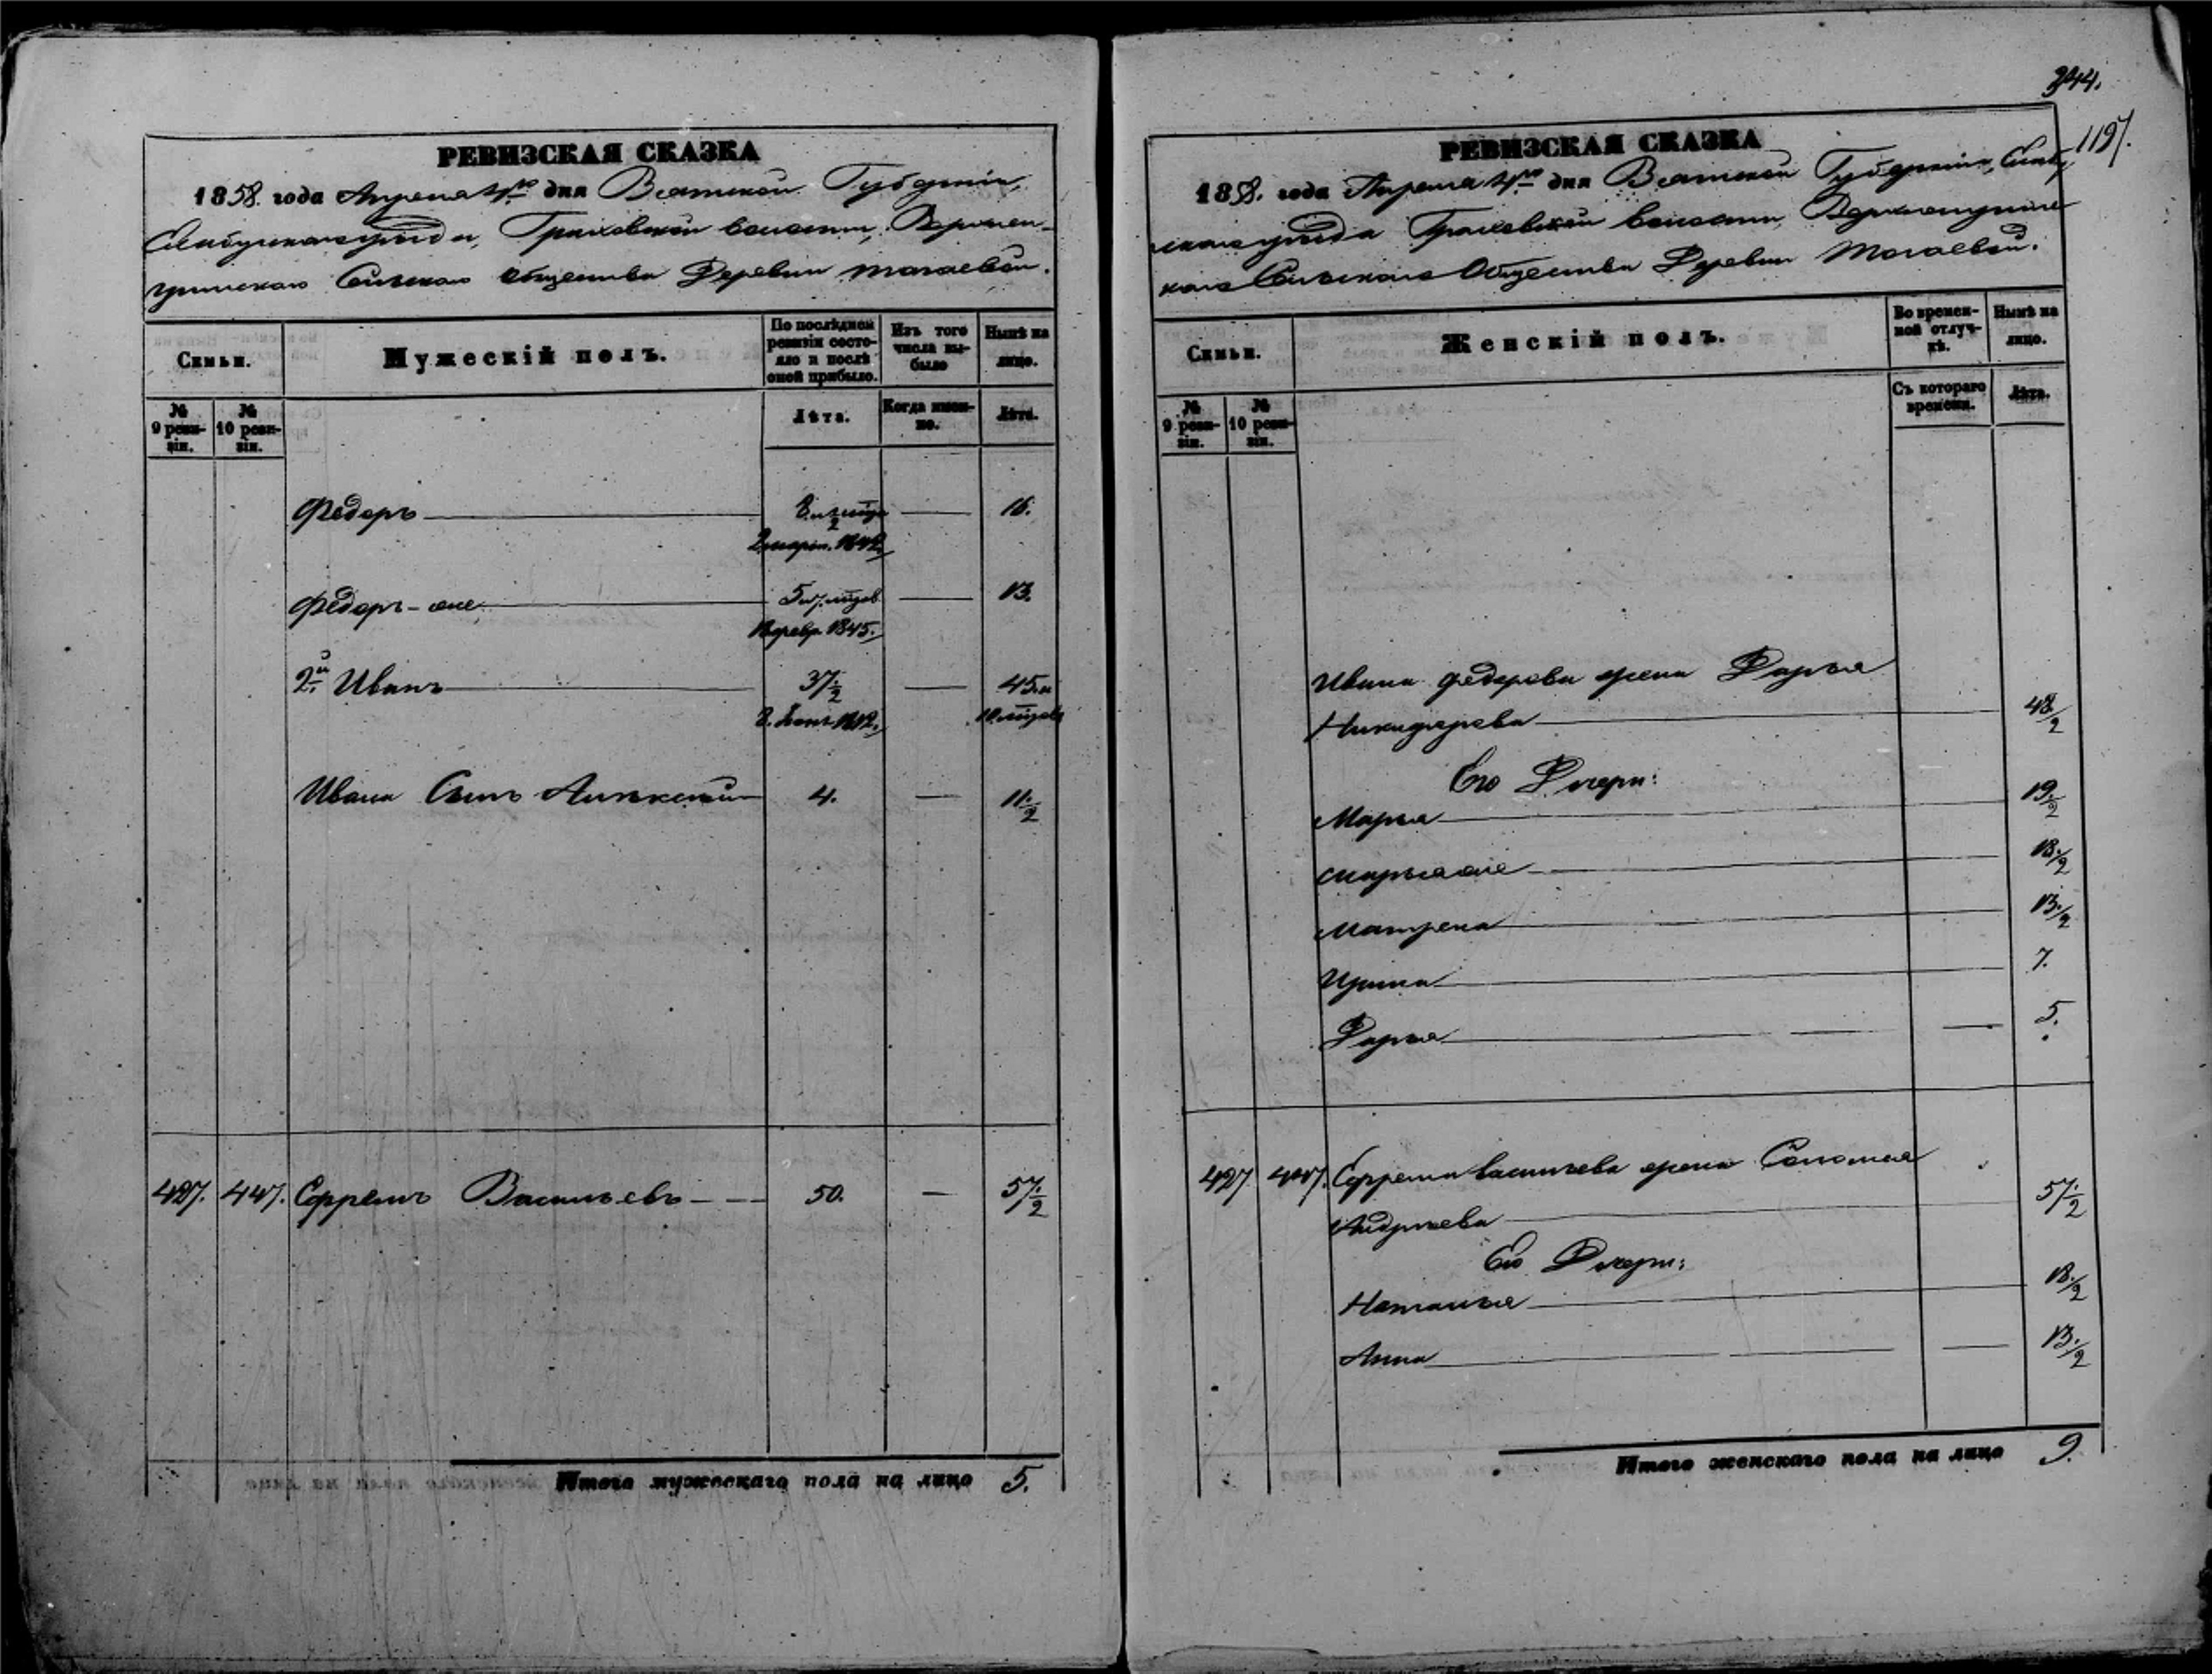 РЕВИЗСКАЯ СКАЗКА
1858. года Апреля дня Вятской Губерніи,
Елабужскаго уѣзда, Граховской волости,
Сельскаго Общества Деревни Тогаевой.
Семьи.
Мужескій полъ.
По послѣдней ревизіи состояло и послѣ оной прибыло.
Изъ того числа выбыло
Нынѣ на лицо.
№ 9 ревизіи.
№ 10 ревизіи.
Лѣта.
Когда именно.
Лѣта.
Федоръ 16.
1842.
Федоръ-же 13.
1845.
2й Иванъ 37 1/2 45. и
10 мѣцовъ
Ивана Сынъ Алѣксѣй 4. 11 1/2
427. 447. Ефремъ Васильевъ 50. 57 1/2
Итого мужескаго пола на лицо 5.
344.
1197.
РЕВИЗСКАЯ СКАЗКА
1858. года Апреля дня Вятской Губерніи, Елабуж
скаго уѣзда Граховской волости,
каго Сельскаго Общества Деревни Тогаевой.
Семьи.
Женскій полъ.
Во временной отлучкѣ.
Нынѣ на лицо.
№ 9 ревизіи.
№ 10 ревизіи.
Съ котораго времени.
Лѣта.
Ивана Федорова жена Дарья
Никифорова 48 1/2
Его Дочери:
Марья 19 1/2
Марья же 18 1/2
Матрена 13 1/2
Ирина 7.
Дарья 5.
427 447. Ефрема Васильева жена Соломея
Андрѣева 57 1/2
Его Дочери:
Наталья 18 1/2
Анна 13 1/2
Итого женскаго пола на лицо 9.